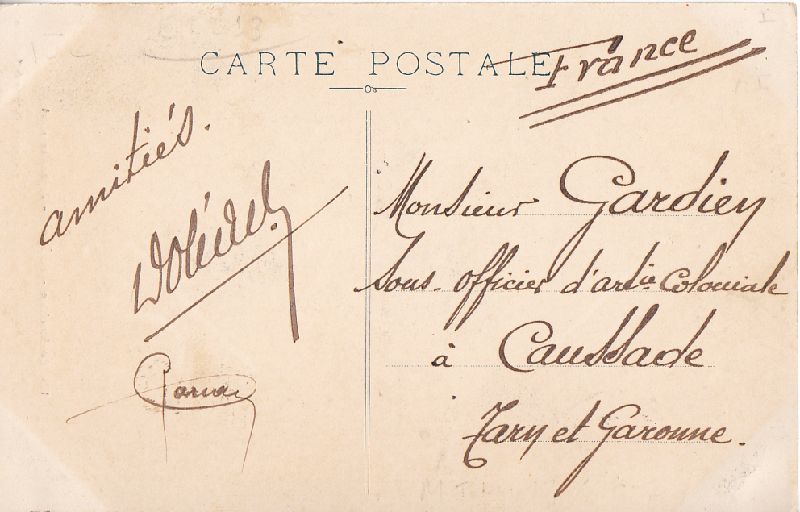 CARTE POSTALE
France
amitiés.
Monsieur Gardien
Sous-officier d'artie Coloniale
à Caussade
Tarn et Garonne.